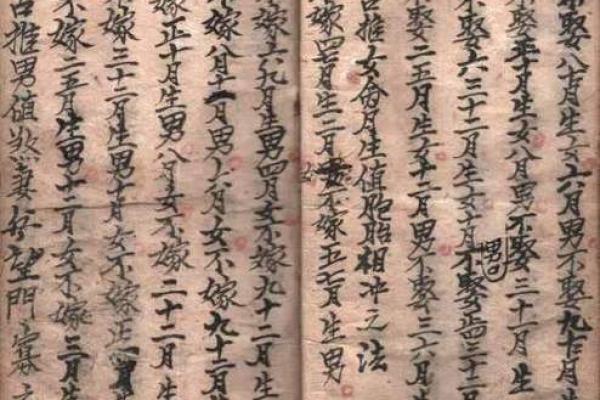 不娶八十月生女六月男不娶九十月生
不娶正十月生女八月男不娶三十一月生
不娶六三十二月生女十月男不娶三十二月
不娶二五月生女十二月男不娶三六月生
占推女命月生值胞胎相冲之法
嫁四月生二月女不嫁五七月生男
嫁六九月生男四月女不嫁九十二月生
不嫁八十一月男六月女不嫁九十二月
嫁正十月生男八月女不嫁二十二月生
嫁三十二月生男十月女不嫁正月
不嫁二五月生男十二月女不嫁三月生
占推男值煞妻望門寡